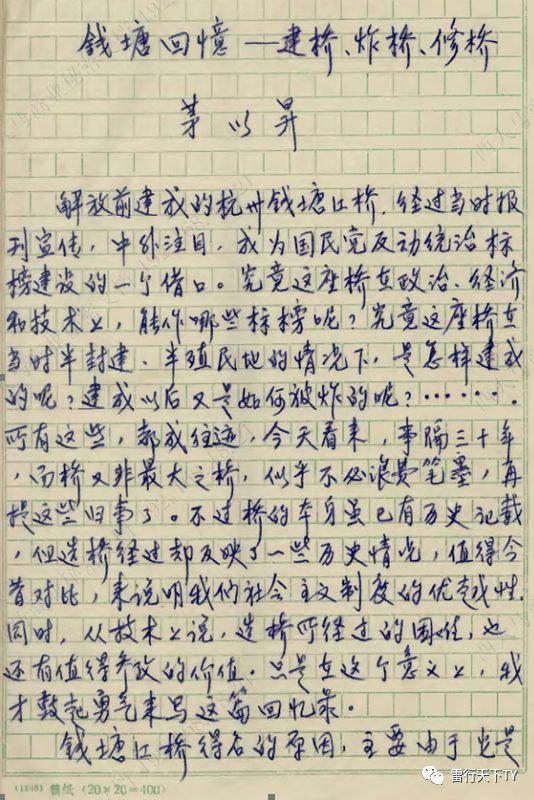 钱塘回憶——建桥、炸桥、修桥
茅以昇
解放前建成的杭州钱塘江桥，经过当时报
刊宣传，中外注目，成为国民党反动统治标
榜建设的一个借口。究竟这座桥在政治、经济
和技术上，能作哪些标榜呢？究竟这座桥在
当时半封建、半殖民地的情况下，是怎样建成
的呢？建成以后又是如何被炸的呢？……．
所有这些，都成往迹，今天看来，事隔三十年
，而桥又非最大之桥，似乎不必浪费笔墨，再
提这些旧事了。不过桥的本身虽已有历史记载
，但造桥经过却反映了一些历史情况，值得今
昔对比，来说明我们社会主义制度的优越性．
同时，从技术上说，造桥所经过的困难，也
还有值得参考的价值。只是在这个意义上，我
才鼓起勇气来写这篇回忆录。
钱塘江桥得名的原因，主要由于它是
(1288) 稿纸 (20×20=400)
雷行天下TY